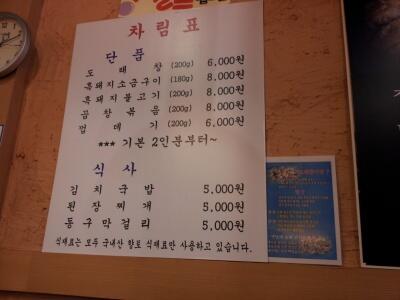 차림표
단품
도래창 (200g) 6,000원
흑돼지소금구이 (180g) 8,000원
흑돼지불고기 (200g) 8,000원
곱창볶음 (200g) 8,000원
껍데기 (200g) 6,000원
*** 기본 2인분부터~
식사
김치국밥 5,000원
된장찌개 5,000원
동구막걸리 5,000원
식재료는 모두 국내산 향토 식재료만 사용하고 있습니다.